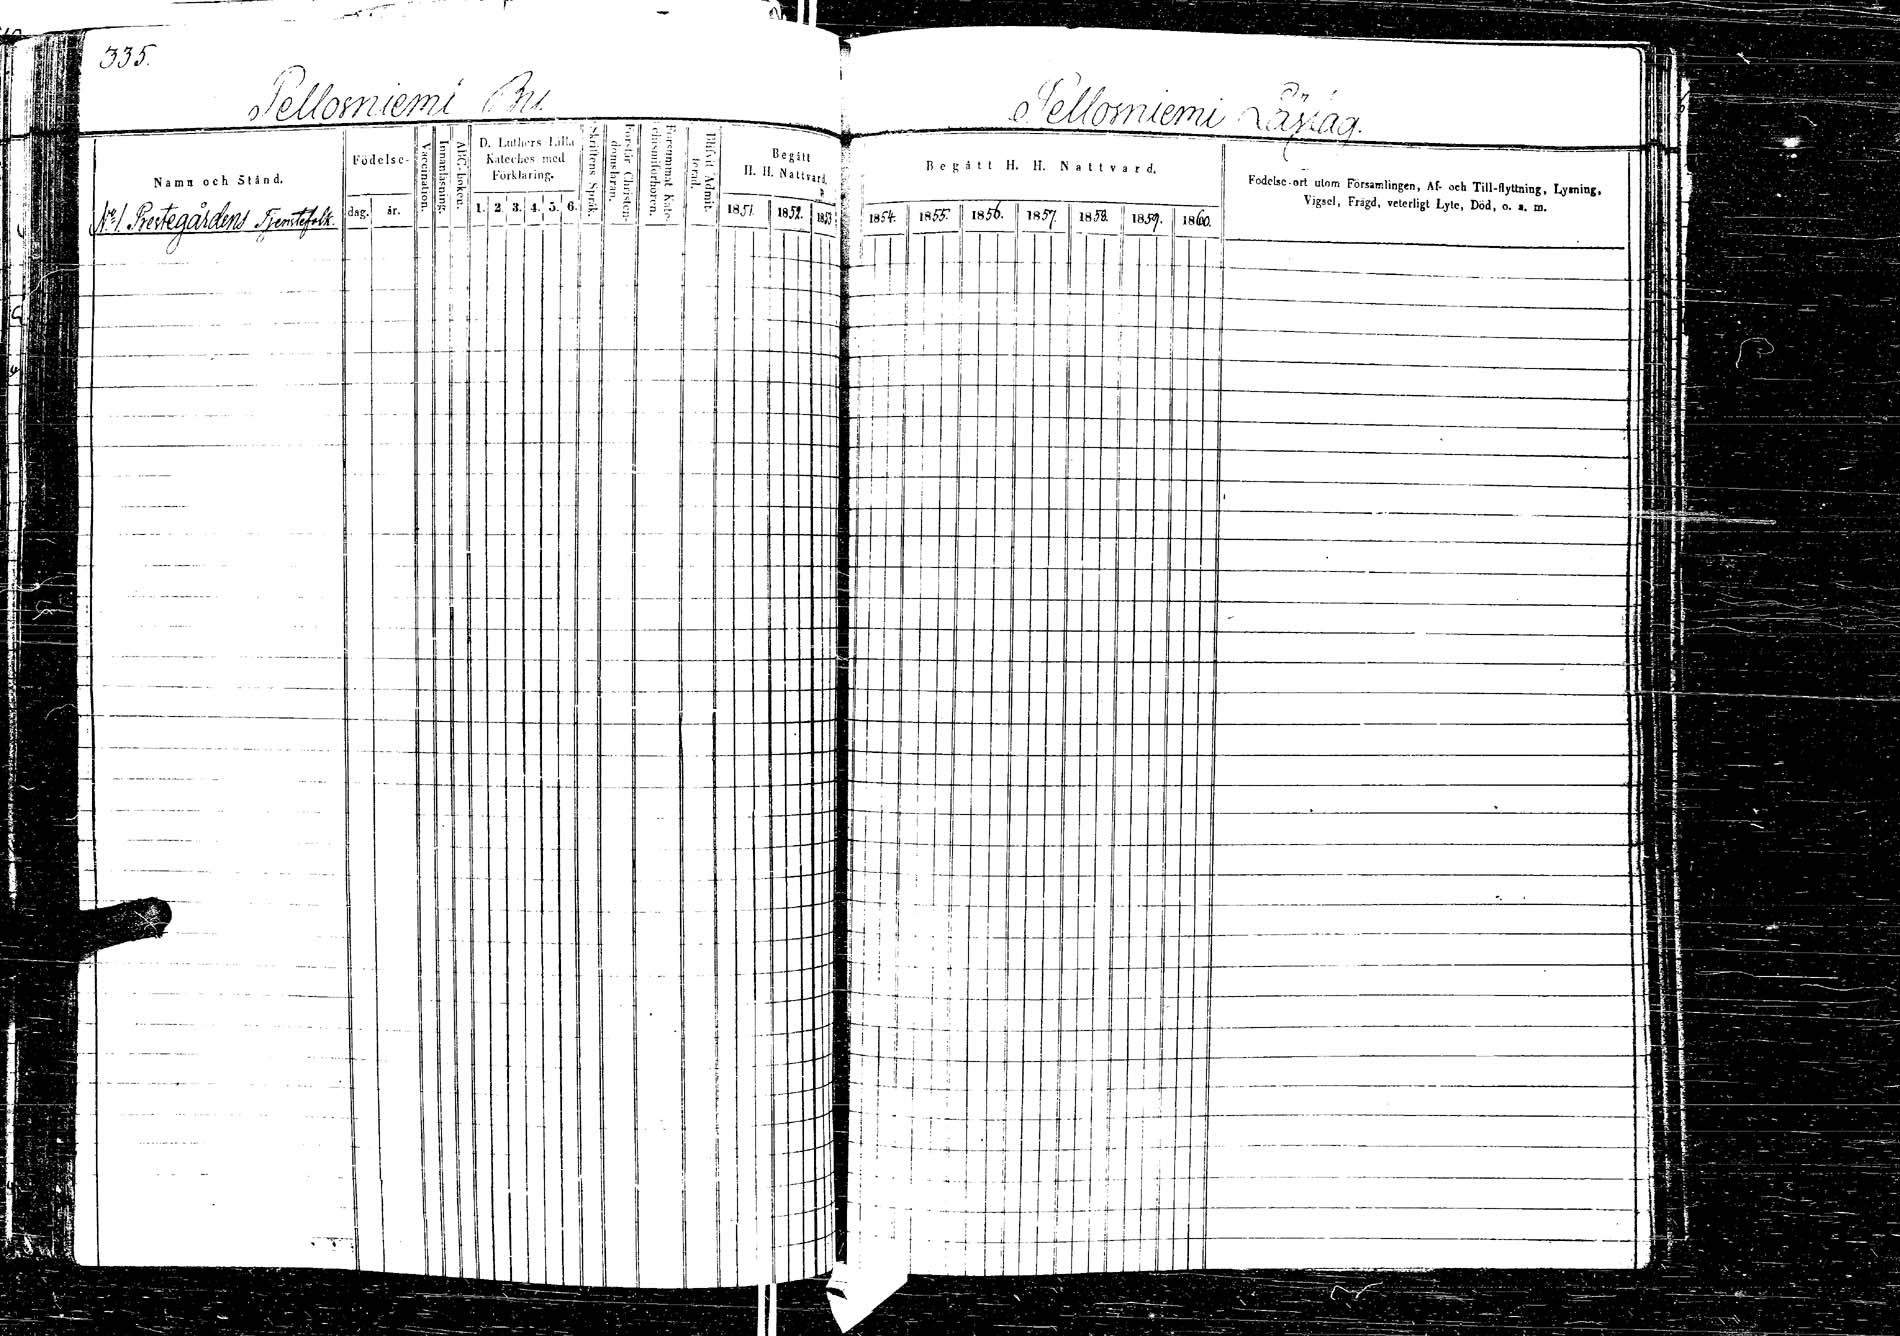 335.
Pellosniemi By.
Namn och Stånd.
Födelse-
dag.
år.
Vaccination.
Innanläsning.
ABC-boken.
D. Luthers Lilla
Kateches med
Förklaring.
1. 2. 3. 4. 5. 6.
Skriftens Språk.
Förstår Christen-
domsläran.
Försummat Kate-
chismiförhören.
Blifvit Admit-
terad.
Begått
H. H. Nattvard.
1851. 1852. 1853
No 1. Prestegårdens Tjenstefolk.
Pellosniemi Läslag.
Begått H. H. Nattvard.
1854. 1855. 1856. 1857. 1858. 1859. 1860.
Födelse-ort utom Församlingen, Af- och Till-flyttning, Lysning,
Vigsel, Frägd, veterligt Lyte, Död, o. s. m.